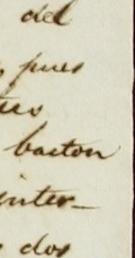 del
, pues
tres
baston
inter-
s dos